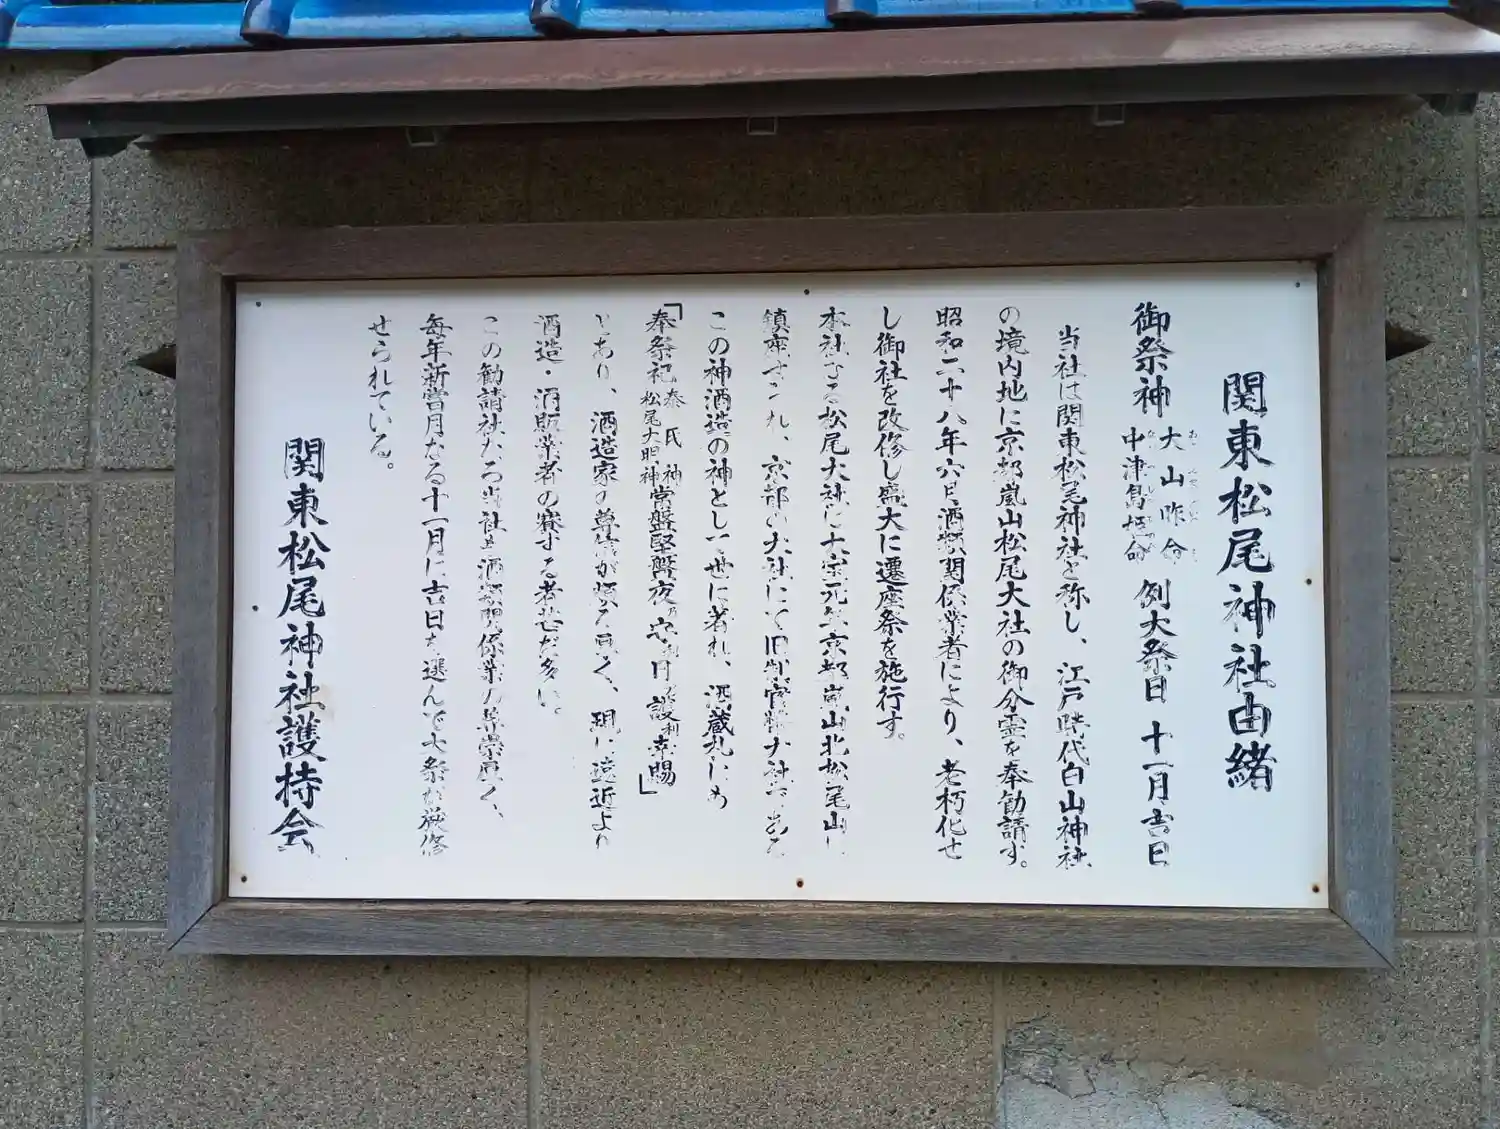 関東松尾神社由緒
御祭神 大山咋命 中津島姫命 例大祭日 十一月吉日
当社は関東松尾神社と称し、江戸時代白山神社
の境内地に京都嵐山松尾大社の御分霊を奉勧請す。
昭和二十八年六月酒類関係業者により、老朽化せ
し御社を改修し盛大に遷座祭を施行す。
本社なる松尾大社は大宝元年京都嵐山北松尾山に
鎮座すされ、京都の大社にて旧制官幣大社である
この神酒造の神として世に著れ、酒蔵札にも
「奉祭祀 秦氏神 松尾大明神 常盤堅磐夜乃守日 護利幸賜」
とあり、酒造家の尊信が頗る厚く、現に遠近より
酒造・酒販業者の賽する者甚だ多い。
この勧請社なる当社も酒類関係業の尊崇厚く、
毎年新嘗月なる十一月に吉日を選んで大祭が厳修
せられている。
関東松尾神社護持会